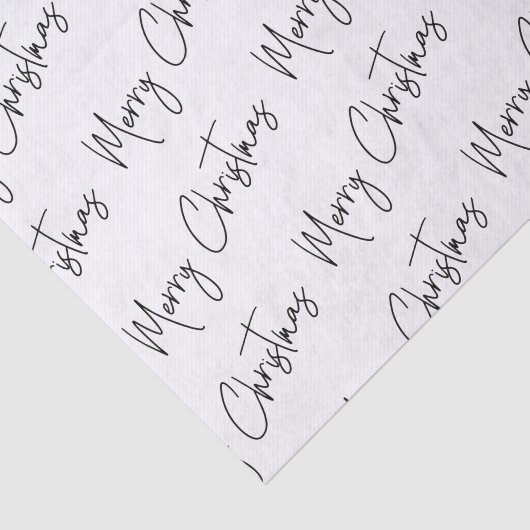 Christmas
Merry Ch
Merry Christmas
Christmas
Merry Christmas
Merry
Merry Christmas
Christmas
Christmas